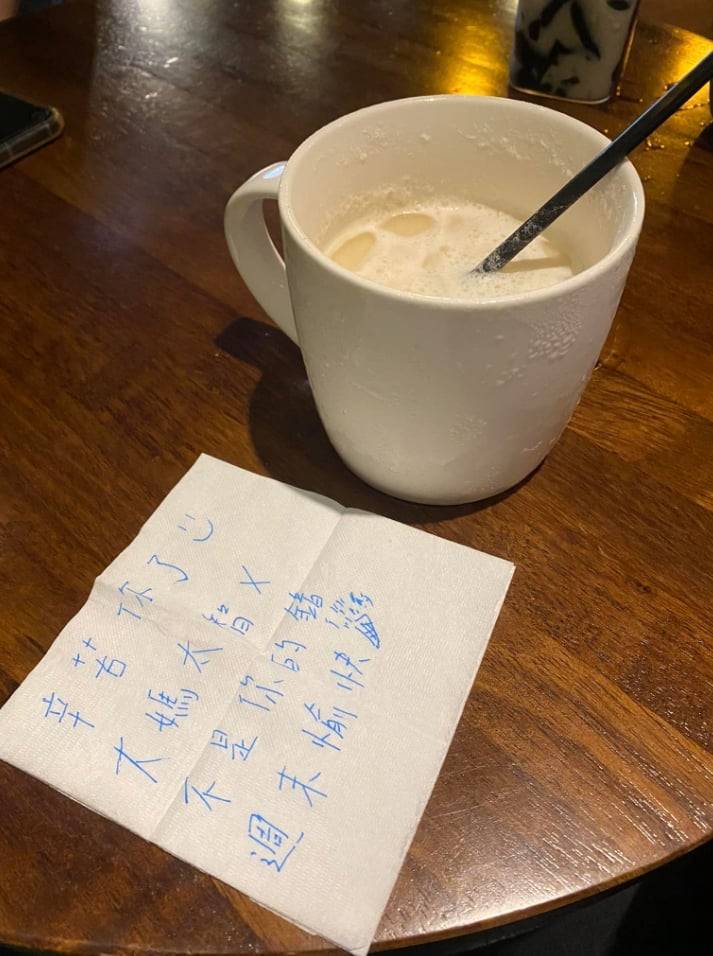 辛苦你了
大媽太智 X
不是你的錯
週末愉快